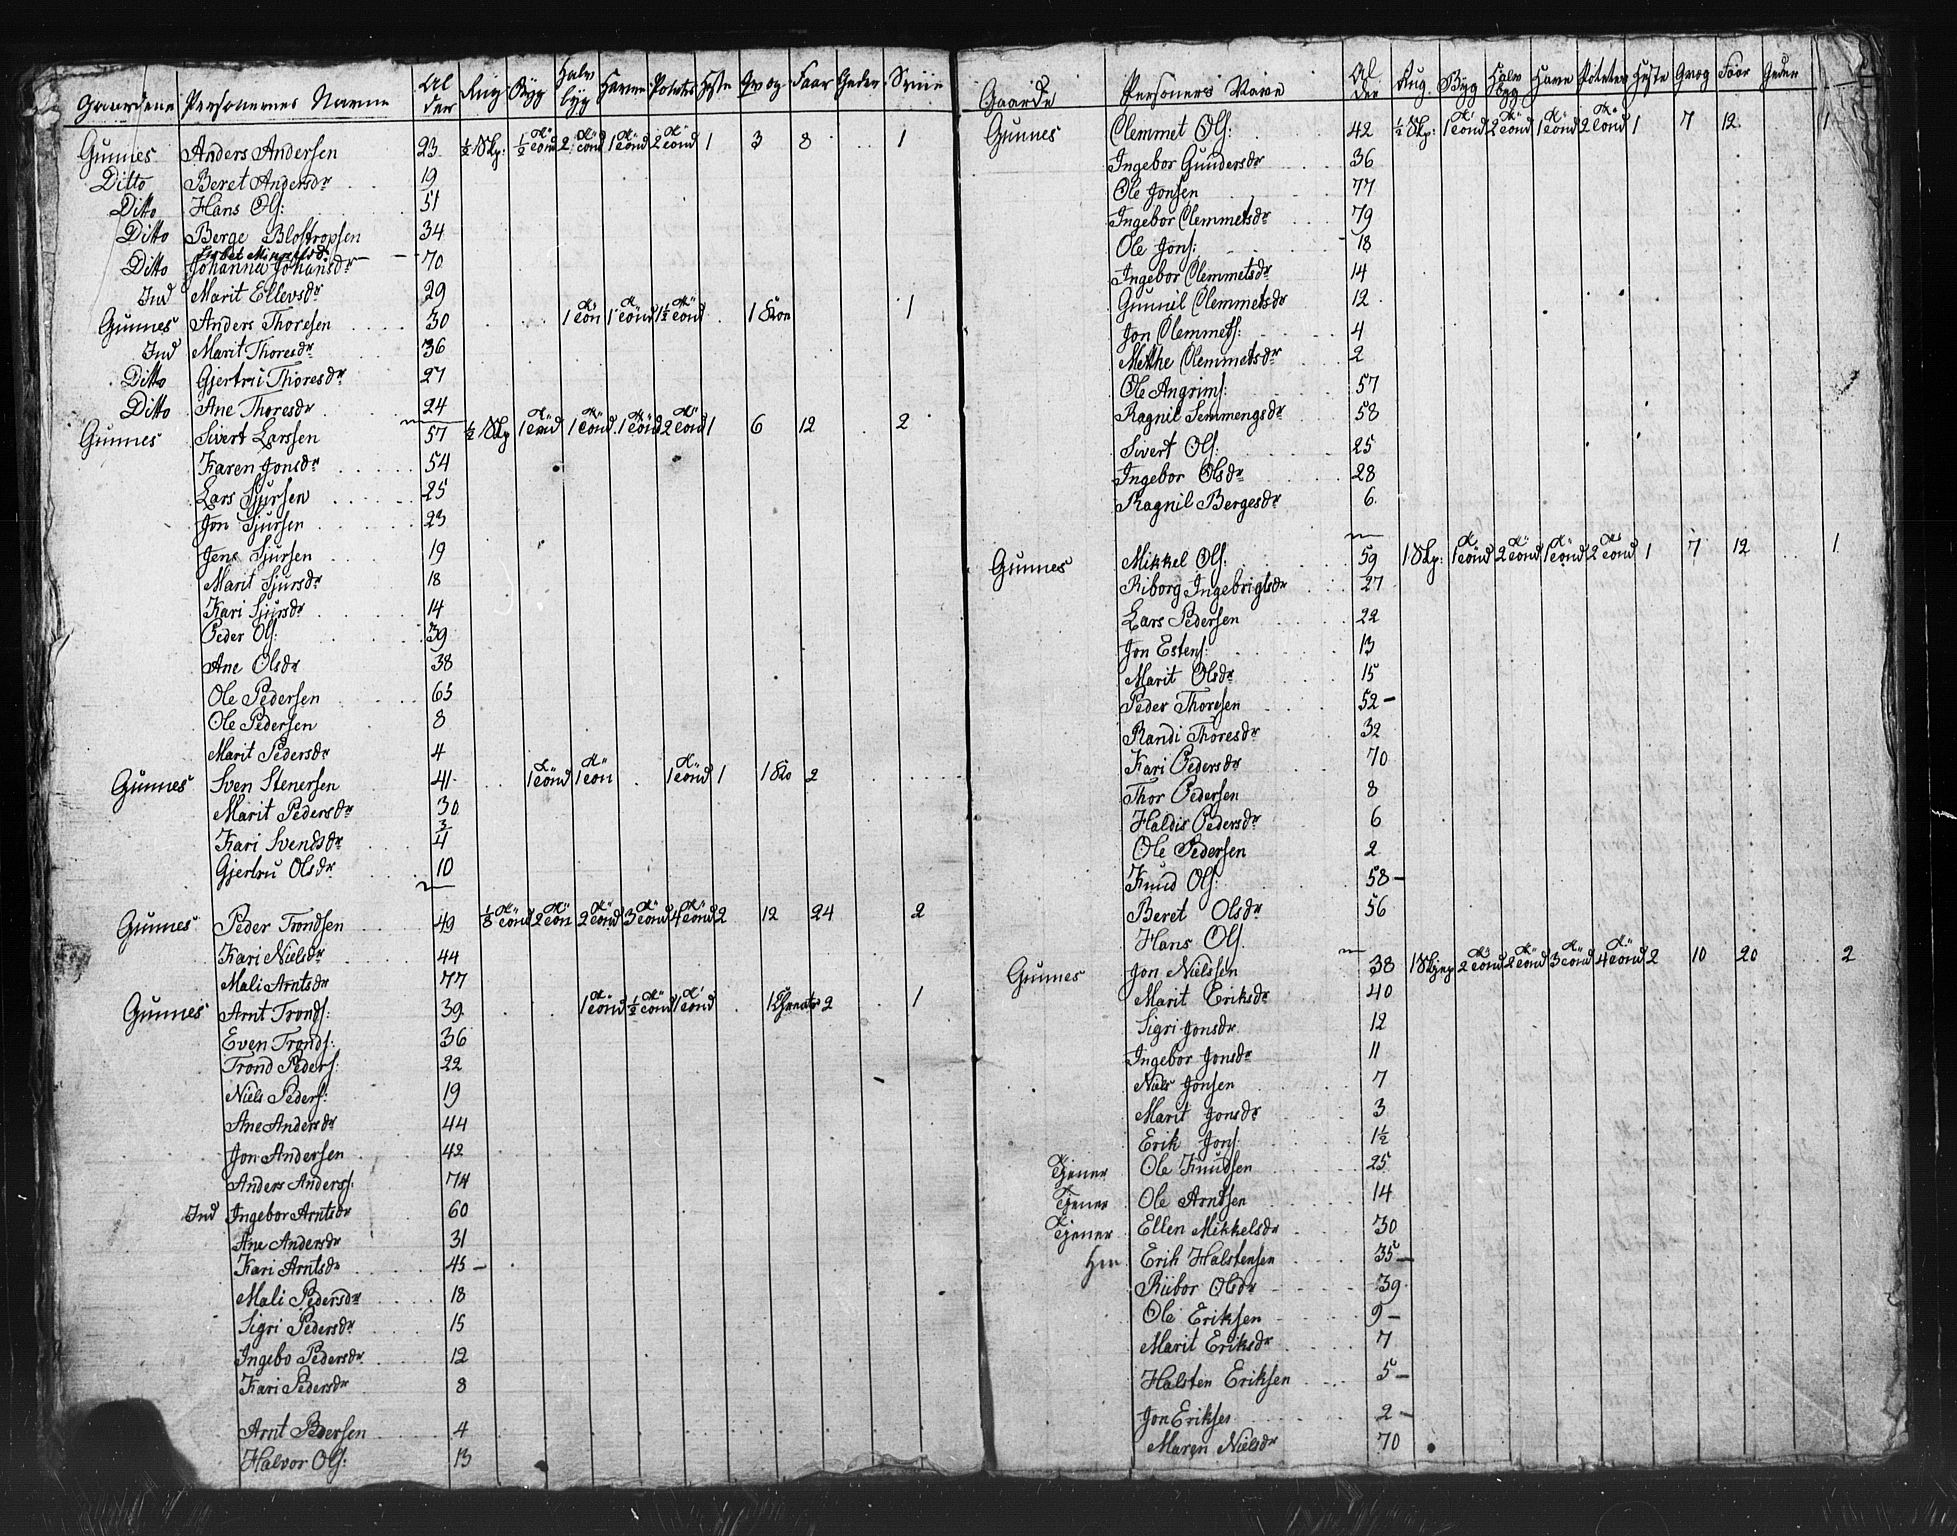 Gaardene Personernes Navne Alder Rug Byg Halv byg Havre Potetes Heste Qvog Faar Geder Sviin
Gunnes Anders Andersen 23 ½ Skp: ½ Tönd 2 Tönd 1 Tönd 2 Tönd 1 3 8 1
Ditto Beret Andersdr 19
Ditto Hans Ols: 51
Ditto Berge Blostropsen 34
Ditto Johanna Johansdr 70
Ind Marit Ellevsdr 29
Gunnes Anders Thoresen 30 1 Tön 1 Tönd 1½ Tönd 1 Koe 1
Ind Marit Thoresdr 36
Ditto Gjertru Thoresdr 27
Ditto Ane Thoresdr 24
Gunnes Sivert Larssen 57 ½ Skp 1 Tönd 1 Tönd 1 Tönd 2 Tönd 1 6 12 2
Karen Jonsdr 54
Lars Sjursen 25
Jon Sjursen 23
Jens Sjursen 19
Marit Sjursdr 18
Kari Sjursdr 14
Peder Ols: 39
Ane Olsdr 38
Ole Pedersen 63
Ole Pedersen 8
Marit Pedersdr 4
Gunnes Sven Stenersen 41 1 Tönd 1 Tön 1 Tönd 1 1 Ko 2
Marit Pedersdr 30
Kari Svendsdr ¾
Gjertru Olsdr 10
Gunnes Peder Trondsen 49 ⅛ Tönd 2 Tön 2 Tönd 3 Tönd 4 Tönd 2 12 24 2
Kari Nielsdr 44
Mali Arntsdr 77
Gunnes Arnt Tronds: 39 1 Tönd ½ Tönd 1 Tönd 1 2 1
Even Tronds: 36
Trond Peders: 22
Niels Peders: 19
Ane Andersdr 44
Jon Andersen 42
Anders Anderss: 74
Ind Ingebor Arntsdr 60
Ane Andersdr 31
Kari Arntsdr 45
Mali Pedersdr 18
Sigri Pedersdr 15
Ingebo Pedersdr 12
Kari Pedersdr 8
Arnt Pedersen 4
Halvor Ols: 13
Gaarde Personers Navne Alder Rug. Byg Halv byg Havre Poteter Heste Qvog Faar Geden
Gunnes Clemmet Ols: 42 ½ Skp: 1 Tönd 2 Tönd 1 Tönd 2 Tönd 1 7 12 1
Ingebor Gundersdr 36
Ole Jonsen 77
Ingebor Clemmetsdr 79
Ole Jons: 18
Ingebor Clemmetsdr 14
Gunnil Clemmetsdr 12
Jon Clemmets: 4
Methe Clemmetsdr 2
Ole Angrims: 57
Ragnil Semmengsdr 58
Sivert Ols: 25
Ingebor Olsdr 28
Ragnil Bergesdr 6
Gunnes Mikkel Ols: 59 1 Skp: 1 Tönd 2 Tönd 1 Tönd 2 Tönd 1 7 12 1
Riborg Ingebrigtsdr 27
Lars Pedersen 22
Jon Estens: 13
Marit Olsdr 15
Peder Thoresen 52
Randi Thoresdr 32
Kari Pedersdr 70
Thor Pedersen 8
Haldis Pedersdr 6
Ole Pedersen 2
Knud Ols: 58
Beret Olsdr 56
Hans Ols.
Gunnes Jon Nielssen 38 1 Skjep 2 Tönd 2 Tönd 3 Tönd 4 Tönd 2 10 20 2
Marit Eriksdr 40
Sigri Jonsdr 12
Ingebor Jonsdr 11
Niels Jonsen 7
Marit Jonsdr 3
Erik Jons: 1½
Tjener Ole Knudsen 25
Tjener Ole Arndsen 14
Tjener Ellen Mikkelsdr 30
Erik Halstensen 35
Riibor Olsdr 39
Ole Eriksen 9
Marit Eriksdr 7
Halsten Eriksen 5
Jon Eriksen 2
Maren Nielsdr 70